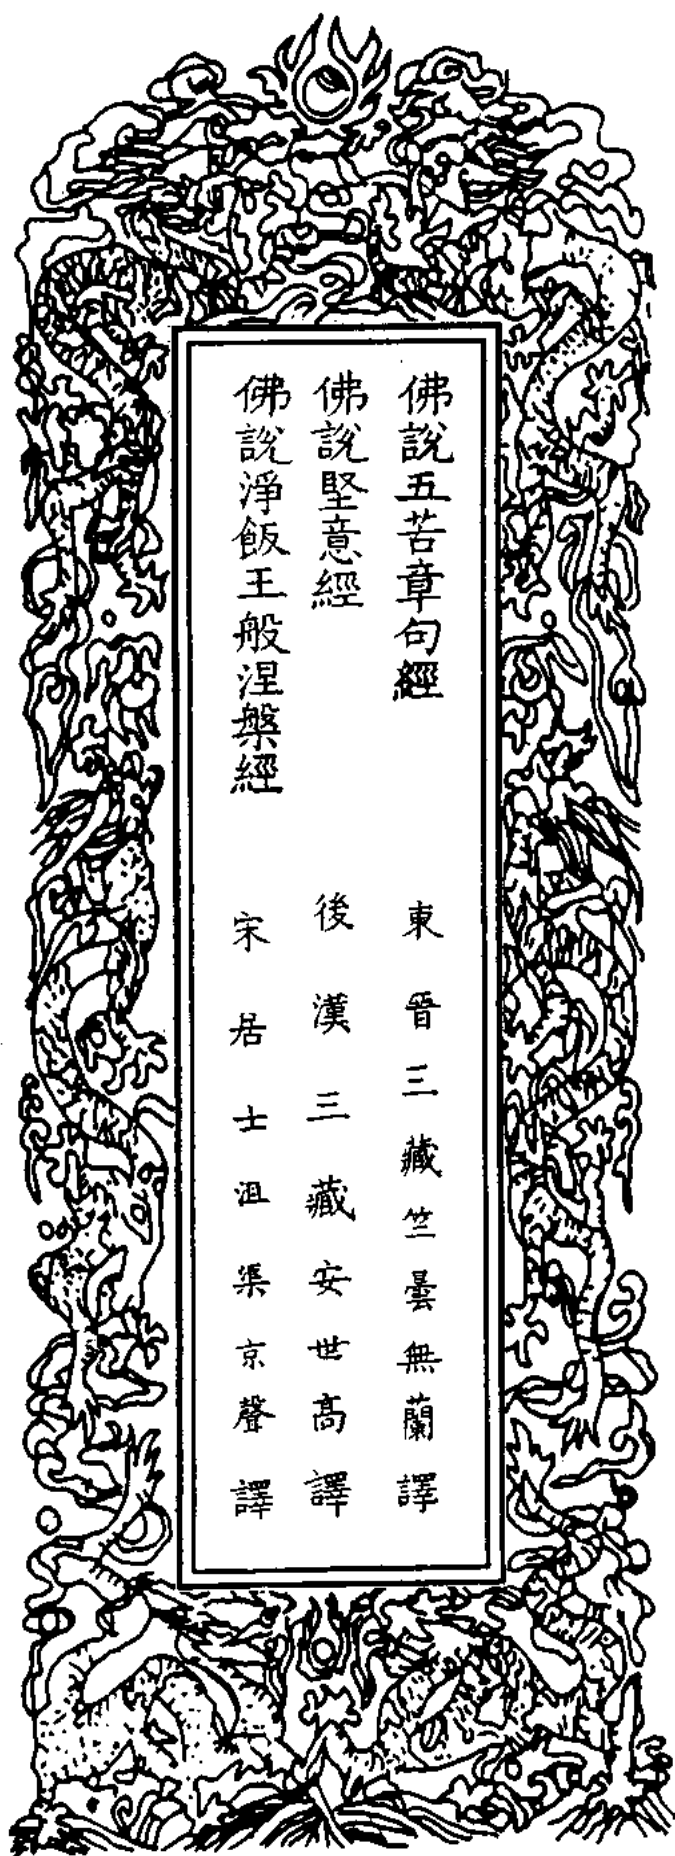 佛說五苦章句經 東晉三藏竺曇無蘭譯
佛說堅意經 後漢三藏安世高譯
佛說淨飯王般涅槃經 宋居士沮渠京聲譯